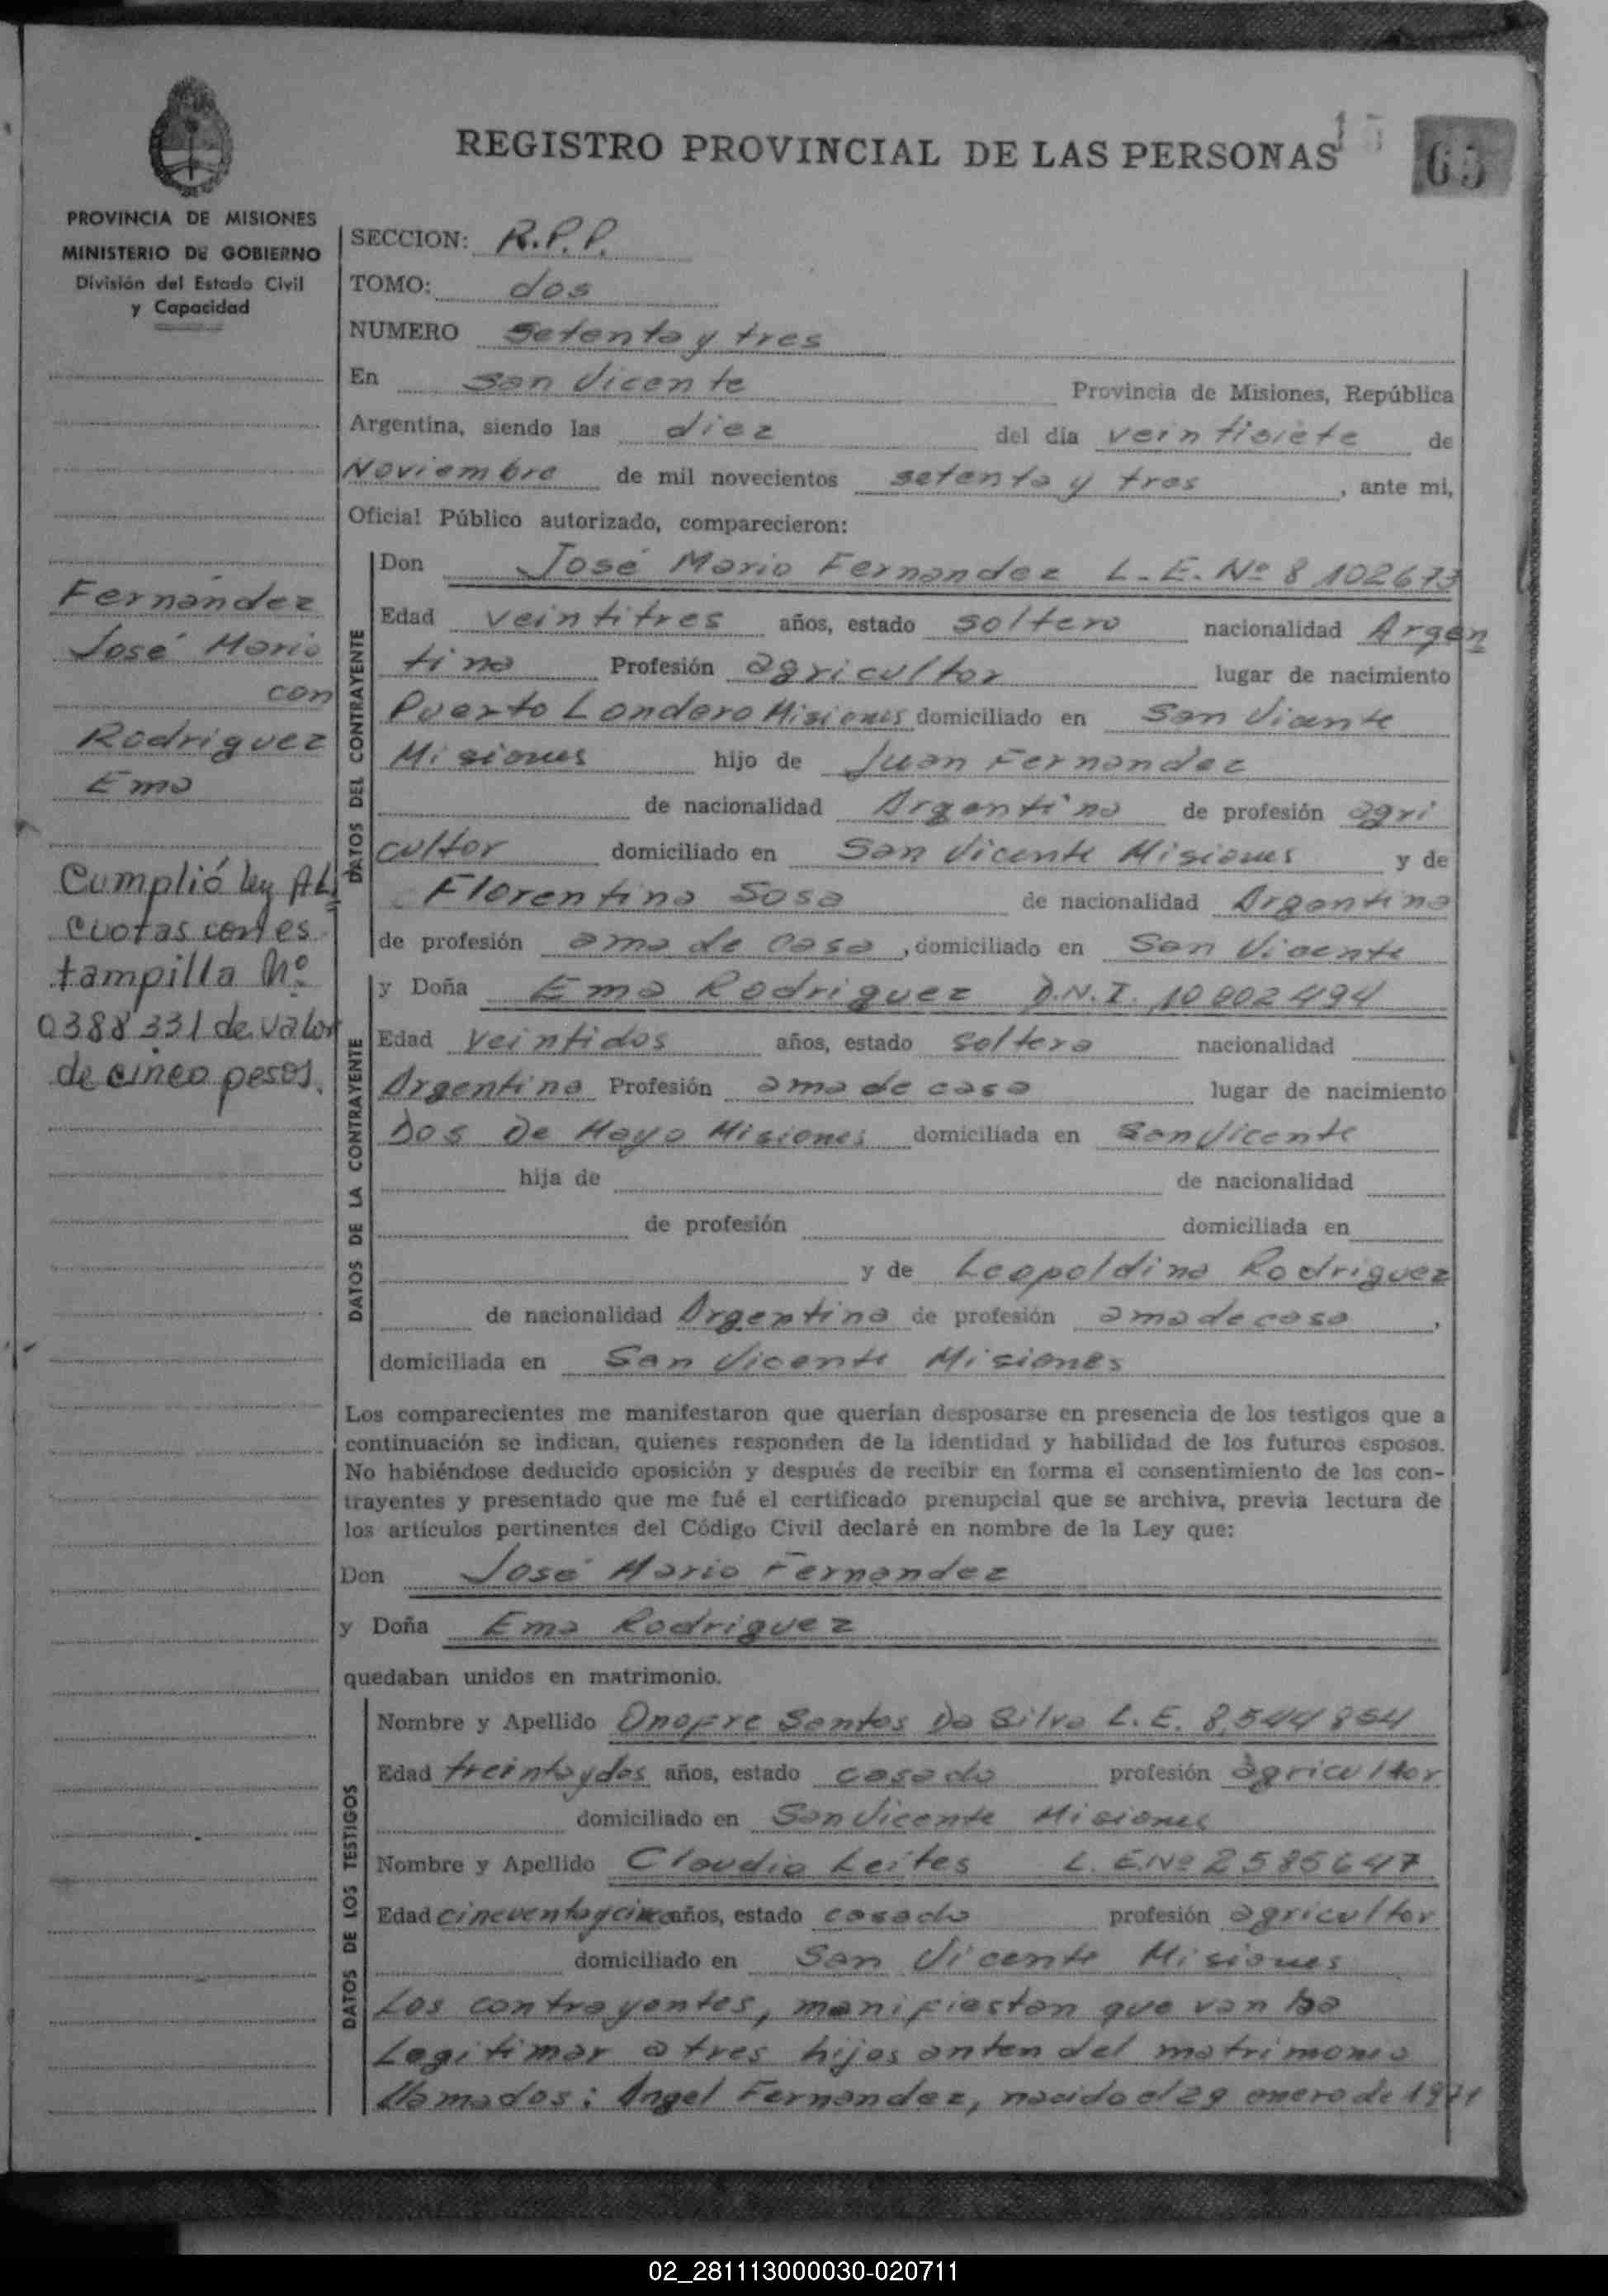 15
65
REGISTRO PROVINCIAL DE LAS PERSONAS
PROVINCIA DE MISIONES
MINISTERIO DE GOBIERNO
División del Estado Civil
y Capacidad
Fernández
José Mario
con
Rodriguez
Ema
Cumplió ley AL
cuotas con es
tampilla Nº
0388331 de valor
de cinco pesos.
SECCION: R.P.P.
TOMO: dos
NUMERO setenta y tres
En San Vicente Provincia de Misiones, República
Argentina, siendo las diez del día veintisiete de
Noviembre de mil novecientos setenta y tres, ante mi,
Oficial Público autorizado, comparecieron:
DATOS DEL CONTRAYENTE
Don José Mario Fernandez L.E. Nº 8102673
Edad veintitres años, estado soltero nacionalidad Argen
tina Profesión agricultor lugar de nacimiento
Puerto Londero Misiones domiciliado en San Vicente
Misiones hijo de Juan Fernandez
de nacionalidad Argentino de profesión agri
cultor domiciliado en San Vicente Misiones y de
Florentina Sosa de nacionalidad Argentina
de profesión ama de casa, domiciliado en San Vicente
DATOS DE LA CONTRAYENTE
y Doña Ema Rodriguez D.N.I. 10002494
Edad Veintidos años, estado soltera nacionalidad
Argentina Profesión ama de casa lugar de nacimiento
Dos De Mayo Misiones domiciliada en San Vicente
hija de de nacionalidad
de profesión domiciliada en
y de Leopoldina Rodriguez
de nacionalidad Argentina de profesión ama de casa,
domiciliada en San Vicente Misiones
Los comparecientes me manifestaron que querían desposarse en presencia de los testigos que a
continuación se indican, quienes responden de la identidad y habilidad de los futuros esposos.
No habiéndose deducido oposición y después de recibir en forma el consentimiento de los con-
trayentes y presentado que me fué el certificado prenupcial que se archiva, previa lectura de
los artículos pertinentes del Código Civil declaré en nombre de la Ley que:
Don José Mario Fernandez
y Doña Ema Rodriguez
quedaban unidos en matrimonio.
DATOS DE LOS TESTIGOS
Nombre y Apellido Onofre Santos Da Silva L.E. 8.544854
Edad treinta y dos años, estado casado profesión agricultor
domiciliado en San Vicente Misiones
Nombre y Apellido Claudio Leites L.E.Nº 2585647
Edad cincuenta y cinco años, estado casado profesión agricultor
domiciliado en San Vicente Misiones
Los contrayentes, manifiestan que van ha
Legitimar a tres hijos anten del matrimonio
llamados: Angel Fernandez, nacido el 29 enero de 1971
02_281113000030-020711